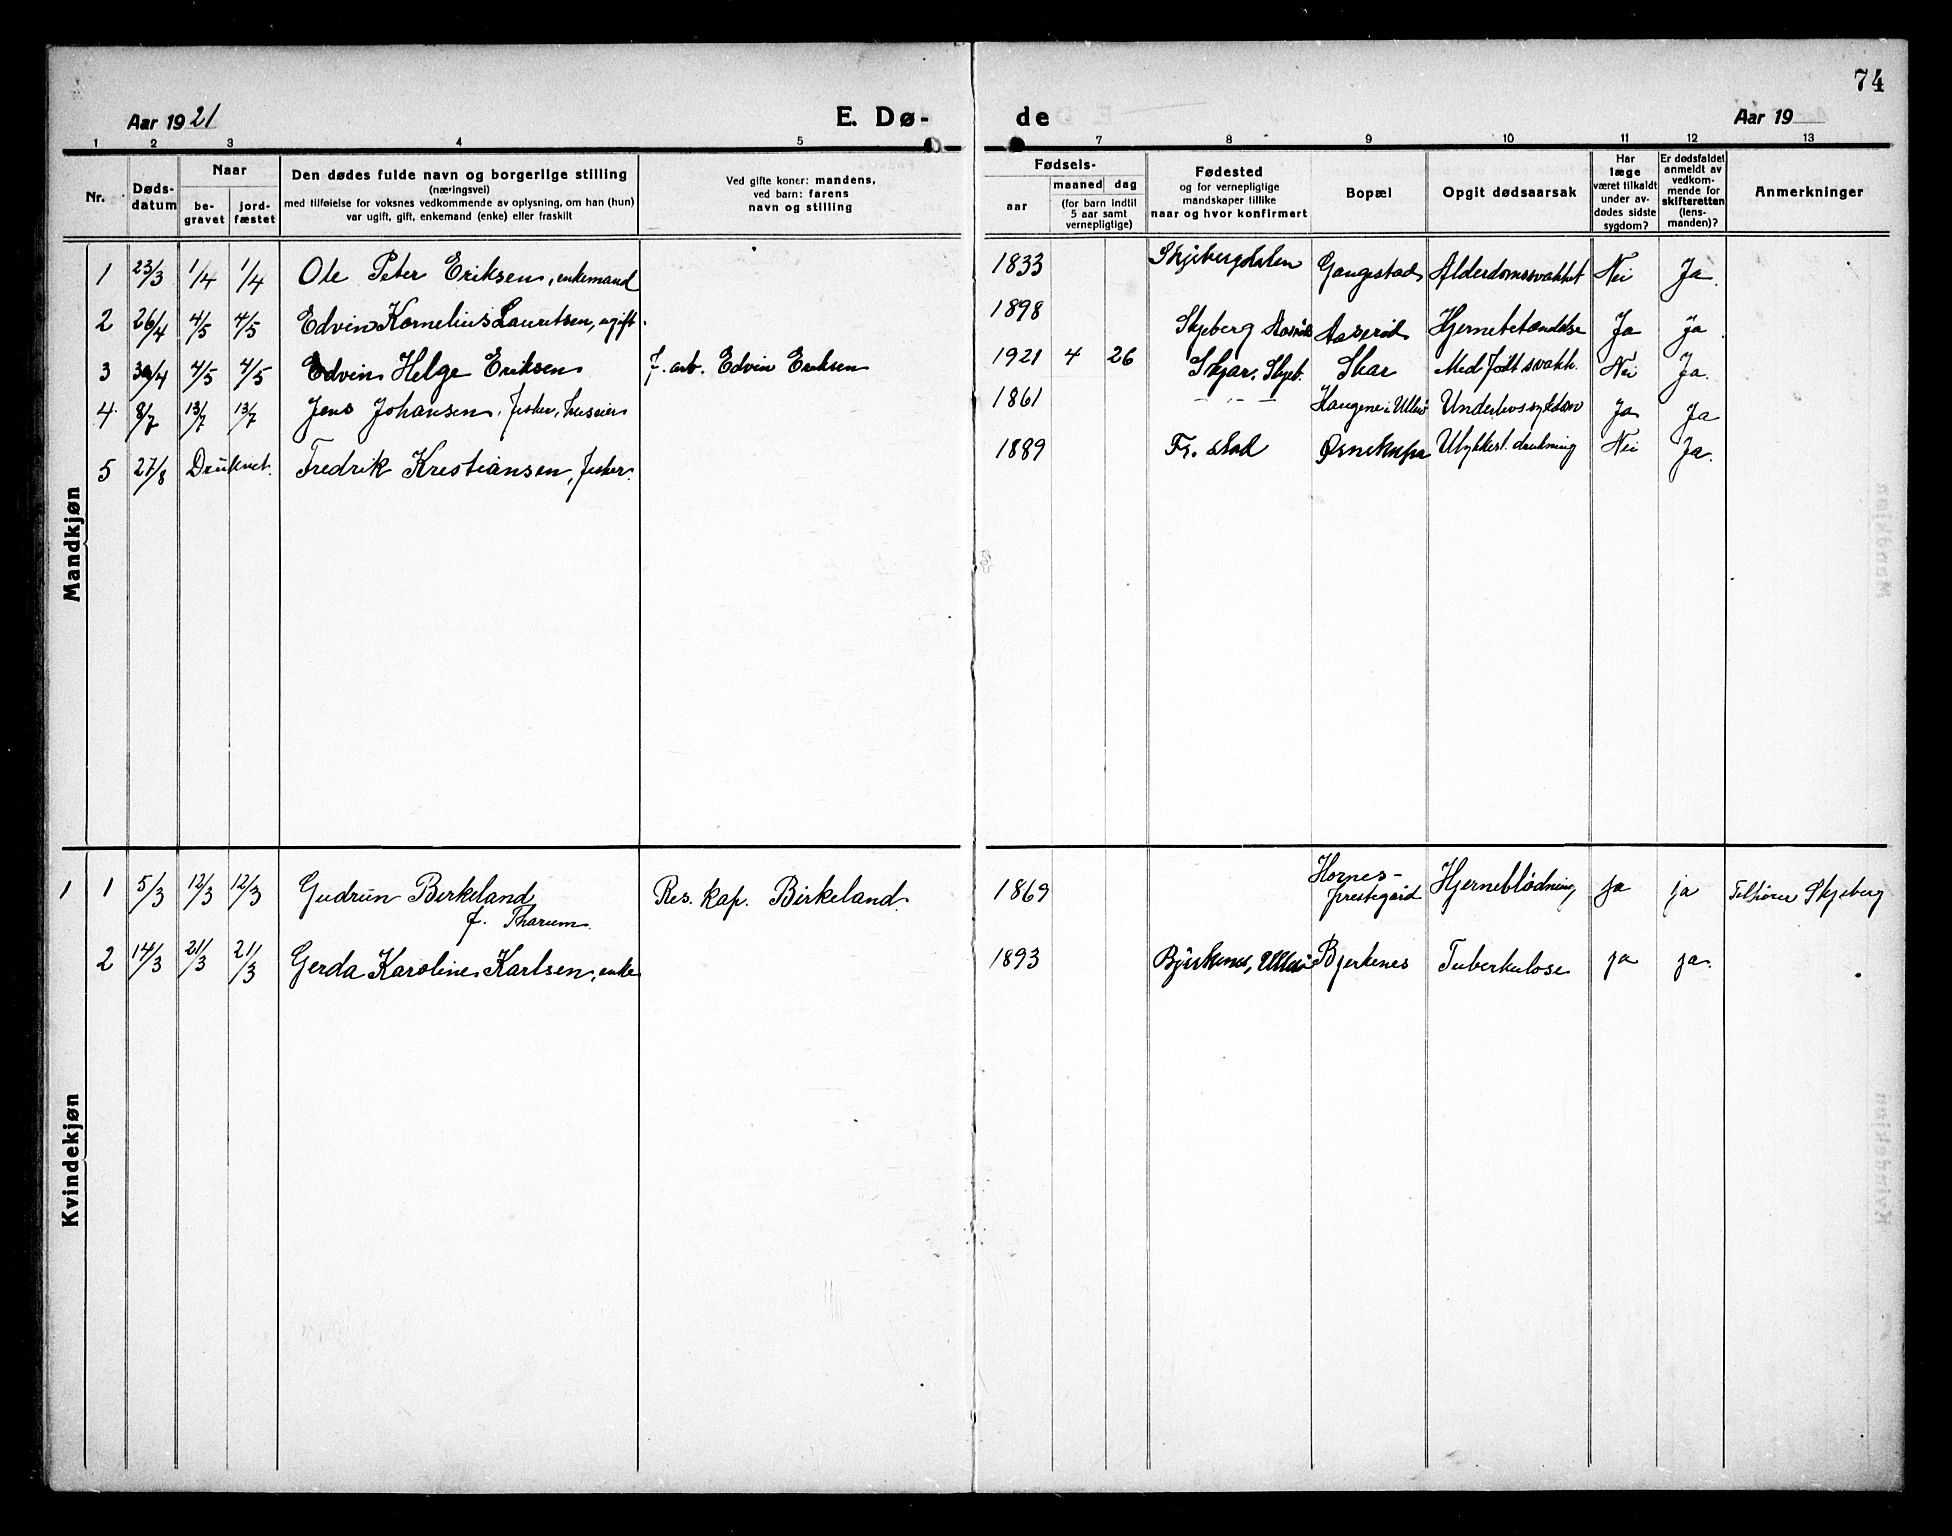 74
Aar 1921 E. Dø- de Aar 19
1 2 3 4 5 7 8 9 10 11 12 13
Nr.
Døds-
datum
Naar
be-
gravet
jord-
fæstet
Den dødes fulde navn og borgerlige stilling
(næringsvei)
med tilføielse for voksnes vedkommende av oplysning, om han (hun)
var ugift, gift, enkemand (enke) eller fraskilt
Ved gifte koner: mandens,
ved barn: farens
navn og stilling
Fødsels-
aar
maaned dag
(for barn indtil
5 aar samt
vernepligtige)
Fødested
og for vernepligtige
mandskaper tillike
naar og hvor konfirmert
Bopæl
Opgit dødsaarsak
Har
læge
været tilkaldt
under av-
dødes sidste
sygdom?
Er dødsfaldet
anmeldt av
vedkom-
mende for
skifteretten
(lens-
manden)?
Anmerkninger
Mandkjøn
1 23/3 1/4 1/4 Ole Peter Eriksen, enkemand 1833 Skjebergdalen Gangestad Alderdomssvakhet Nei Ja
2 26/4 4/5 4/5 Edvin Kornelius Lauritsen, ugift. 1898 Skjeberg Aaserød Hjernebetændelse Ja Ja
3 30/4 4/5 4/5 Edvin Helge Eriksen f. arb. Edvin Eriksen 1921 4 26 Skjar. Skjeb. Skar Medfödt svakh. Nei Ja.
4 8/7 13/7 13/7 Jens Johansen, fisker, huseier 1861 — " — Haugene i Ullerö Underlivssykdom Ja Ja
5 27/8 Druknet. Fredrik Kristiansen, fisker. 1889 Fr. stad Ulykkest. drukning Nei Ja.
Kvindekjøn
1 1 5/3 12/3 12/3 Gudrun Birkeland Res. kap. Birkeland. 1869 Hornes- Hjerneblödning ja ja Tilhører Skjeberg
f. Tharum. prestegård
2 14/3 21/3 21/3 Gerda Karoline Karlsen, enke 1893 Bjerkenes, Ullerö Bjerkenes Tuberkulose ja ja.